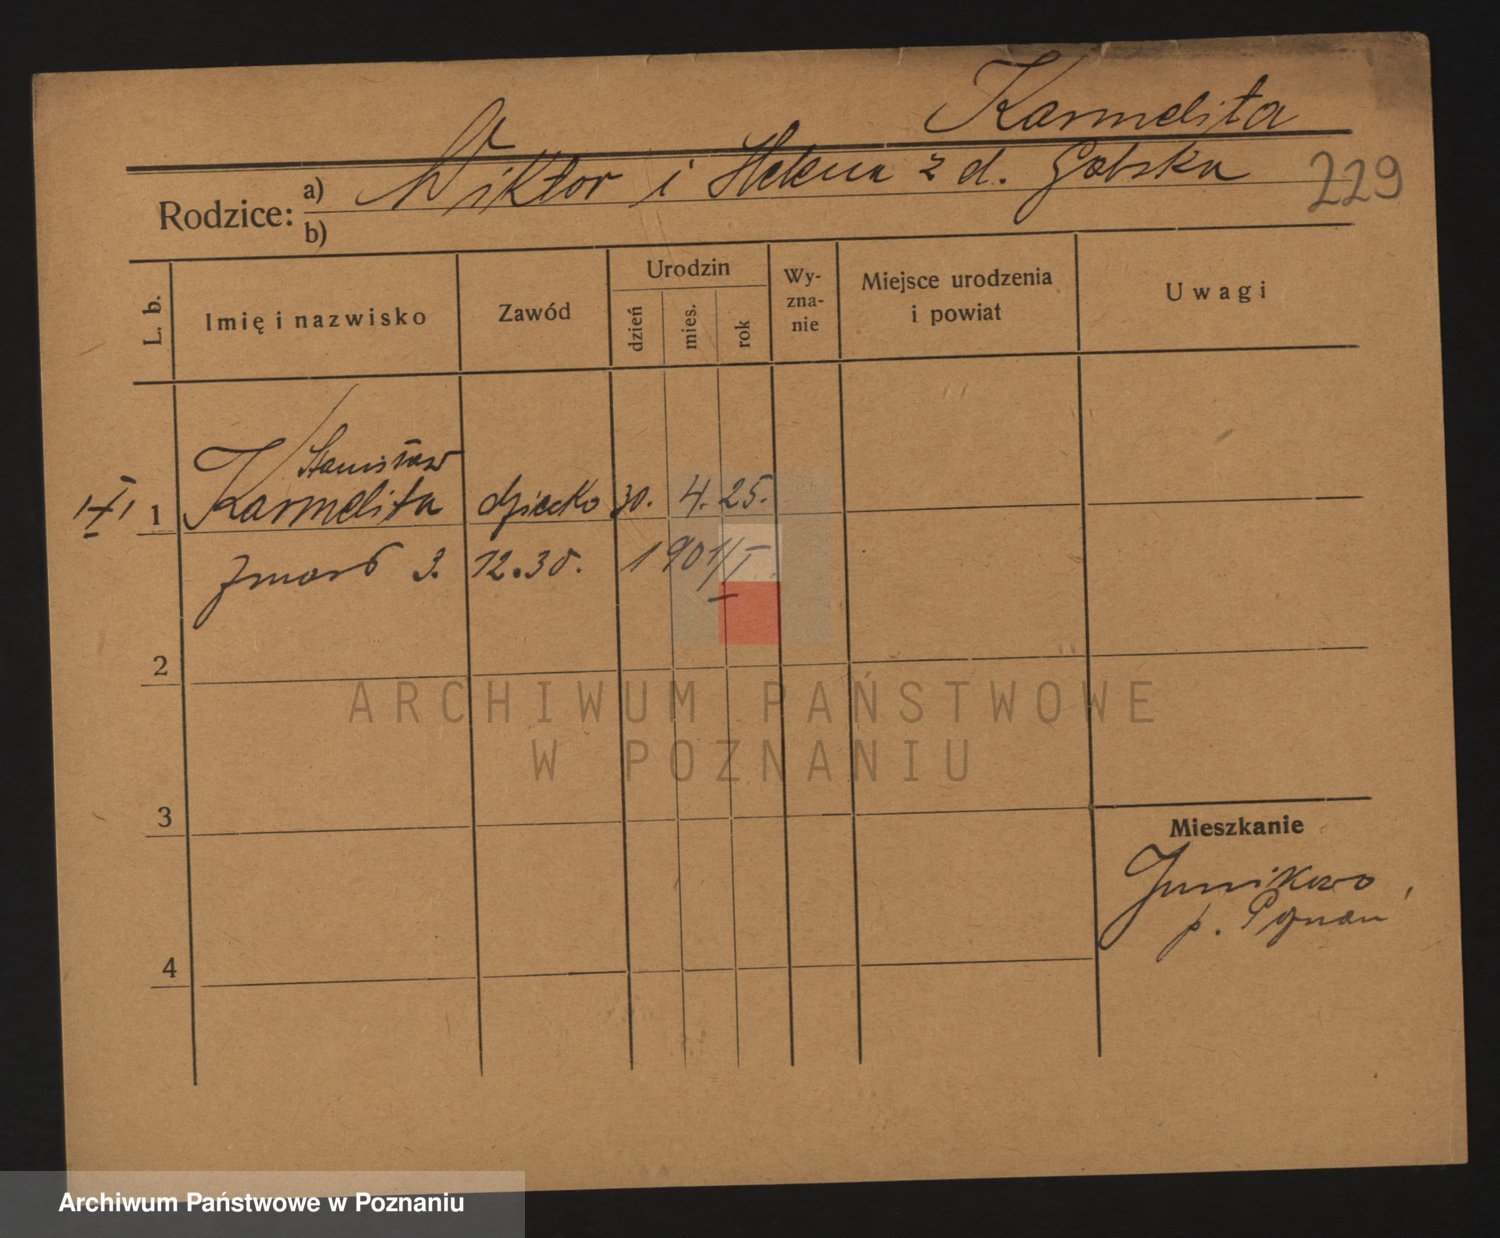 Karmelita
Rodzice: a) Wiktor i Helena z d. Gabska
229
b)
L. b.
Imię i nazwisko
Zawód
Urodzin
dzień
mies.
rok
Wy-
zna-
nie
Miejsce urodzenia
i powiat
Uwagi
Stanisław
1 Karmelita dziecko 30. 4. 25.
zmarł 3. 12.30. 1901/I
2
ARCHIWUM PAŃSTWOWE
W POZNANIU
3
Mieszkanie
Junikowo,
p. Poznań
4
Archiwum Państwowe w Poznaniu